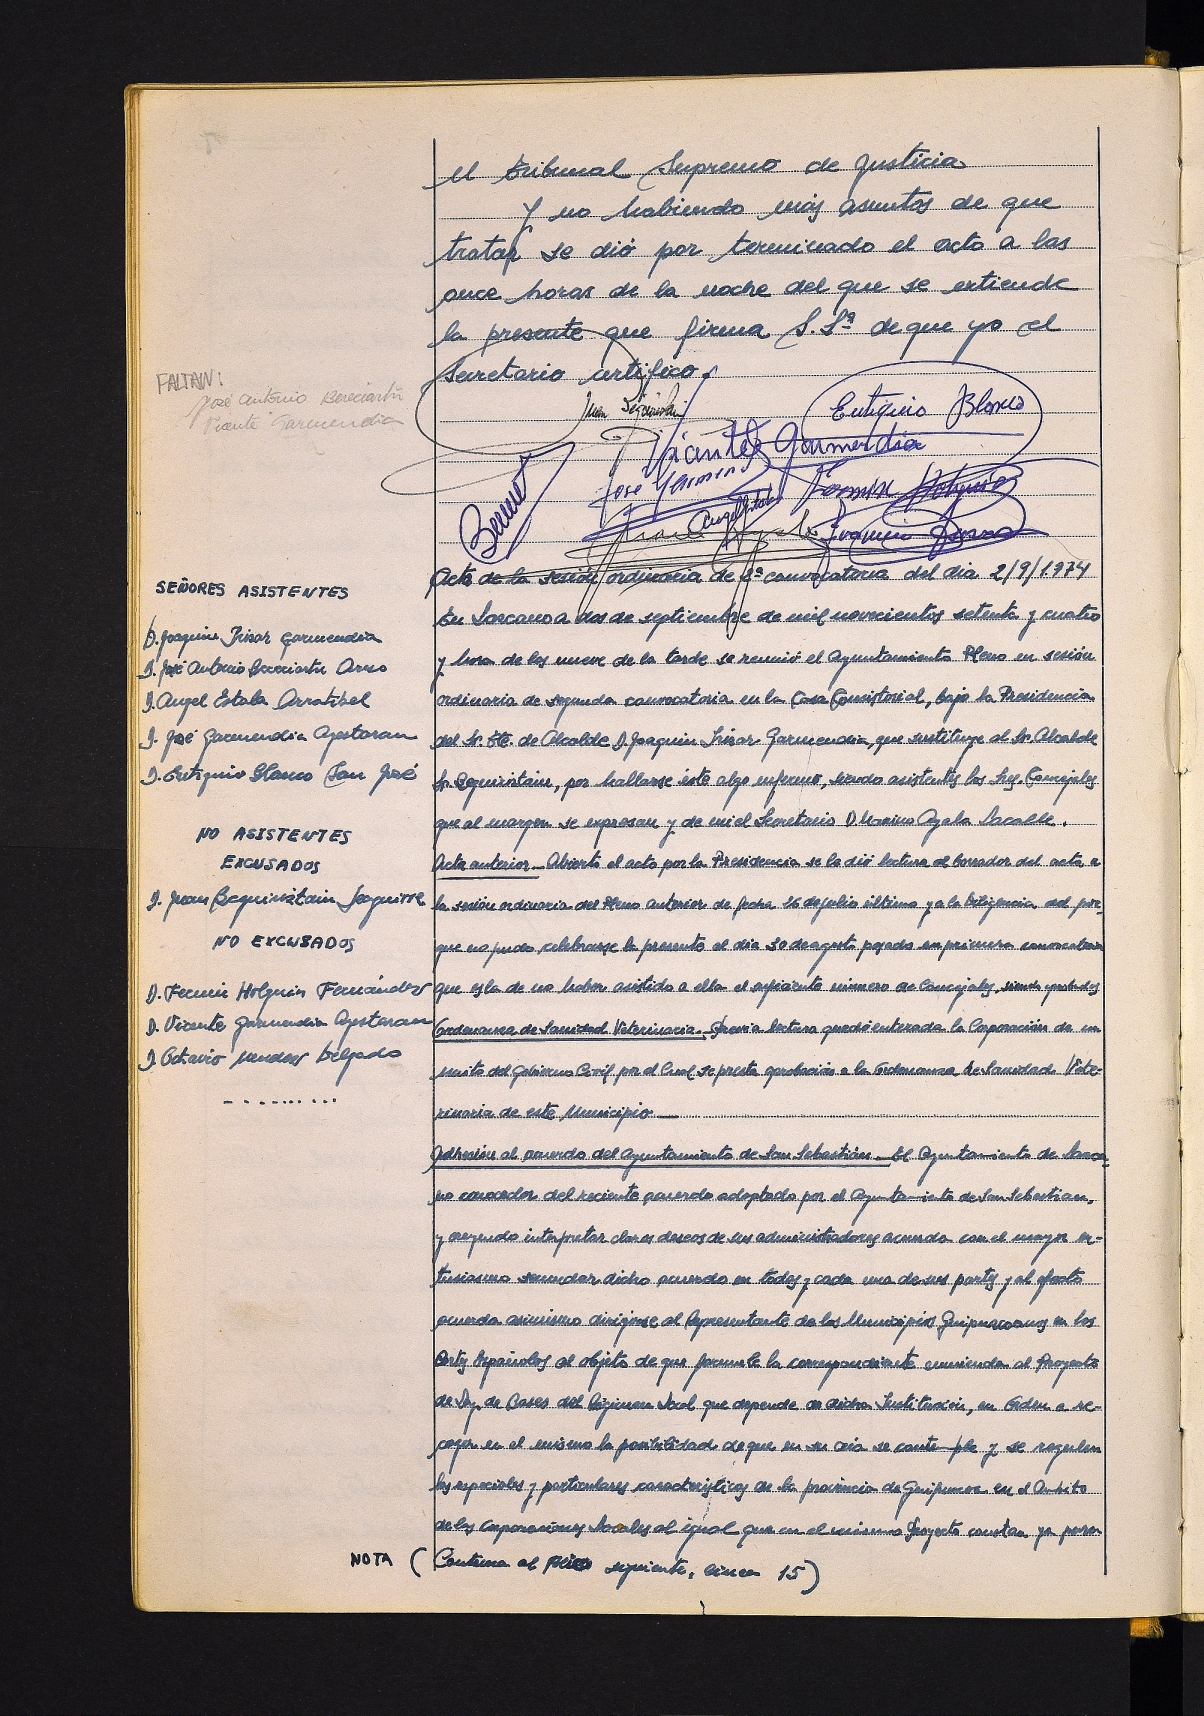 el tribunal Supremo de Justicia
Y no habiendo más asuntos de que
tratar se dió por terminado el acto a las
once horas de la noche del que se extiende
la presente que firma S.Sª de que yo el
Secretario certifico.
FALTAN:
José Antonio Bereciartu
Vicente Garmendia
Eutiquio Blanco
Vicente Garmendia
José Garmend
Fermin Holguin
Angel Estala
Joaquin
SEÑORES ASISTENTES
D. Joaquin Irizar Garmendia
D. José Antonio Bereciartu
D. Angel Estala Arratibel
D. José Garmendia Agostaran
D. Eutiquio Blanco San José
NO ASISTENTES
EXCUSADOS
D. Juan Beguiristain Izaguirre
NO EXCUSADOS
D. Fermin Holguin Fernández
D. Vicente Garmendia Agostaran
D. Octavio Mendez Delgado
Acta de la sesión ordinaria de 2ª convocatoria del dia 2/9/1.974
En Lazcano a dos de septiembre de mil novecientos setenta y cuatro
y hora de las nueve de la tarde se reunió el Ayuntamiento Pleno en sesión
ordinaria de segunda convocatoria en la Casa Consistorial, bajo la Presidencia
del Sr. Tte. de Alcalde D. Joaquin Irizar Garmendia, que sustituye al Sr. Alcalde
Sr. Beguiristain, por hallarse éste algo enfermo, siendo asistentes los Sres. Concejales
que al margen se expresan y de mi el Secretario D. Maximo Ayala Lacalle.
Acta anterior.- Abierto el acto por la Presidencia se la dió lectura al borrador del acta a
la sesión ordinaria del Pleno anterior de fecha 26 de julio último y a la Diligencia del por-
que no pudo celebrarse la presente el dia 30 de agosto pasado en primera convocatoria
que es la de no haber asistido a ella el suficiente número de Concejales, siendo aprobados
Ordenanza de Sanidad Veterinaria.- Previa lectura quedó enterada la Corporación de un
escrito del Gobierno Civil por el cual se presta aprobación a la Ordenanza de Sanidad Vete-
rinaria de este Municipio
Adhesión al acuerdo del Ayuntamiento de San Sebastián.- El Ayuntamiento de Lazca-
no conocedor del reciente acuerdo adoptado por el Ayuntamiento de San Sebastian,
y creyendo interpretar claros deseos de sus administradores acuerda con el mayor en-
tusiasmo secundar dicho acuerdo en todas y cada una de sus partes y al efecto
acuerda asimismo dirigirse al Representante de los Municipios Guipuzcoanos en las
Cortes Españolas al objeto de que formule la correspondiente enmienda al Proyecto
de Ley de Bases del Régimen Local que depende de dicha Institución, en orden a re-
coger en el mismo la posibilidad de que en su dia se contemple y se regulen
las especiales y particulares características de la provincia de Guipuzcoa en el ámbito
de las Corporaciones Locales al igual que en el mismo Proyecto constan ya para
NOTA (Continua al folio siguiente, linea 15)